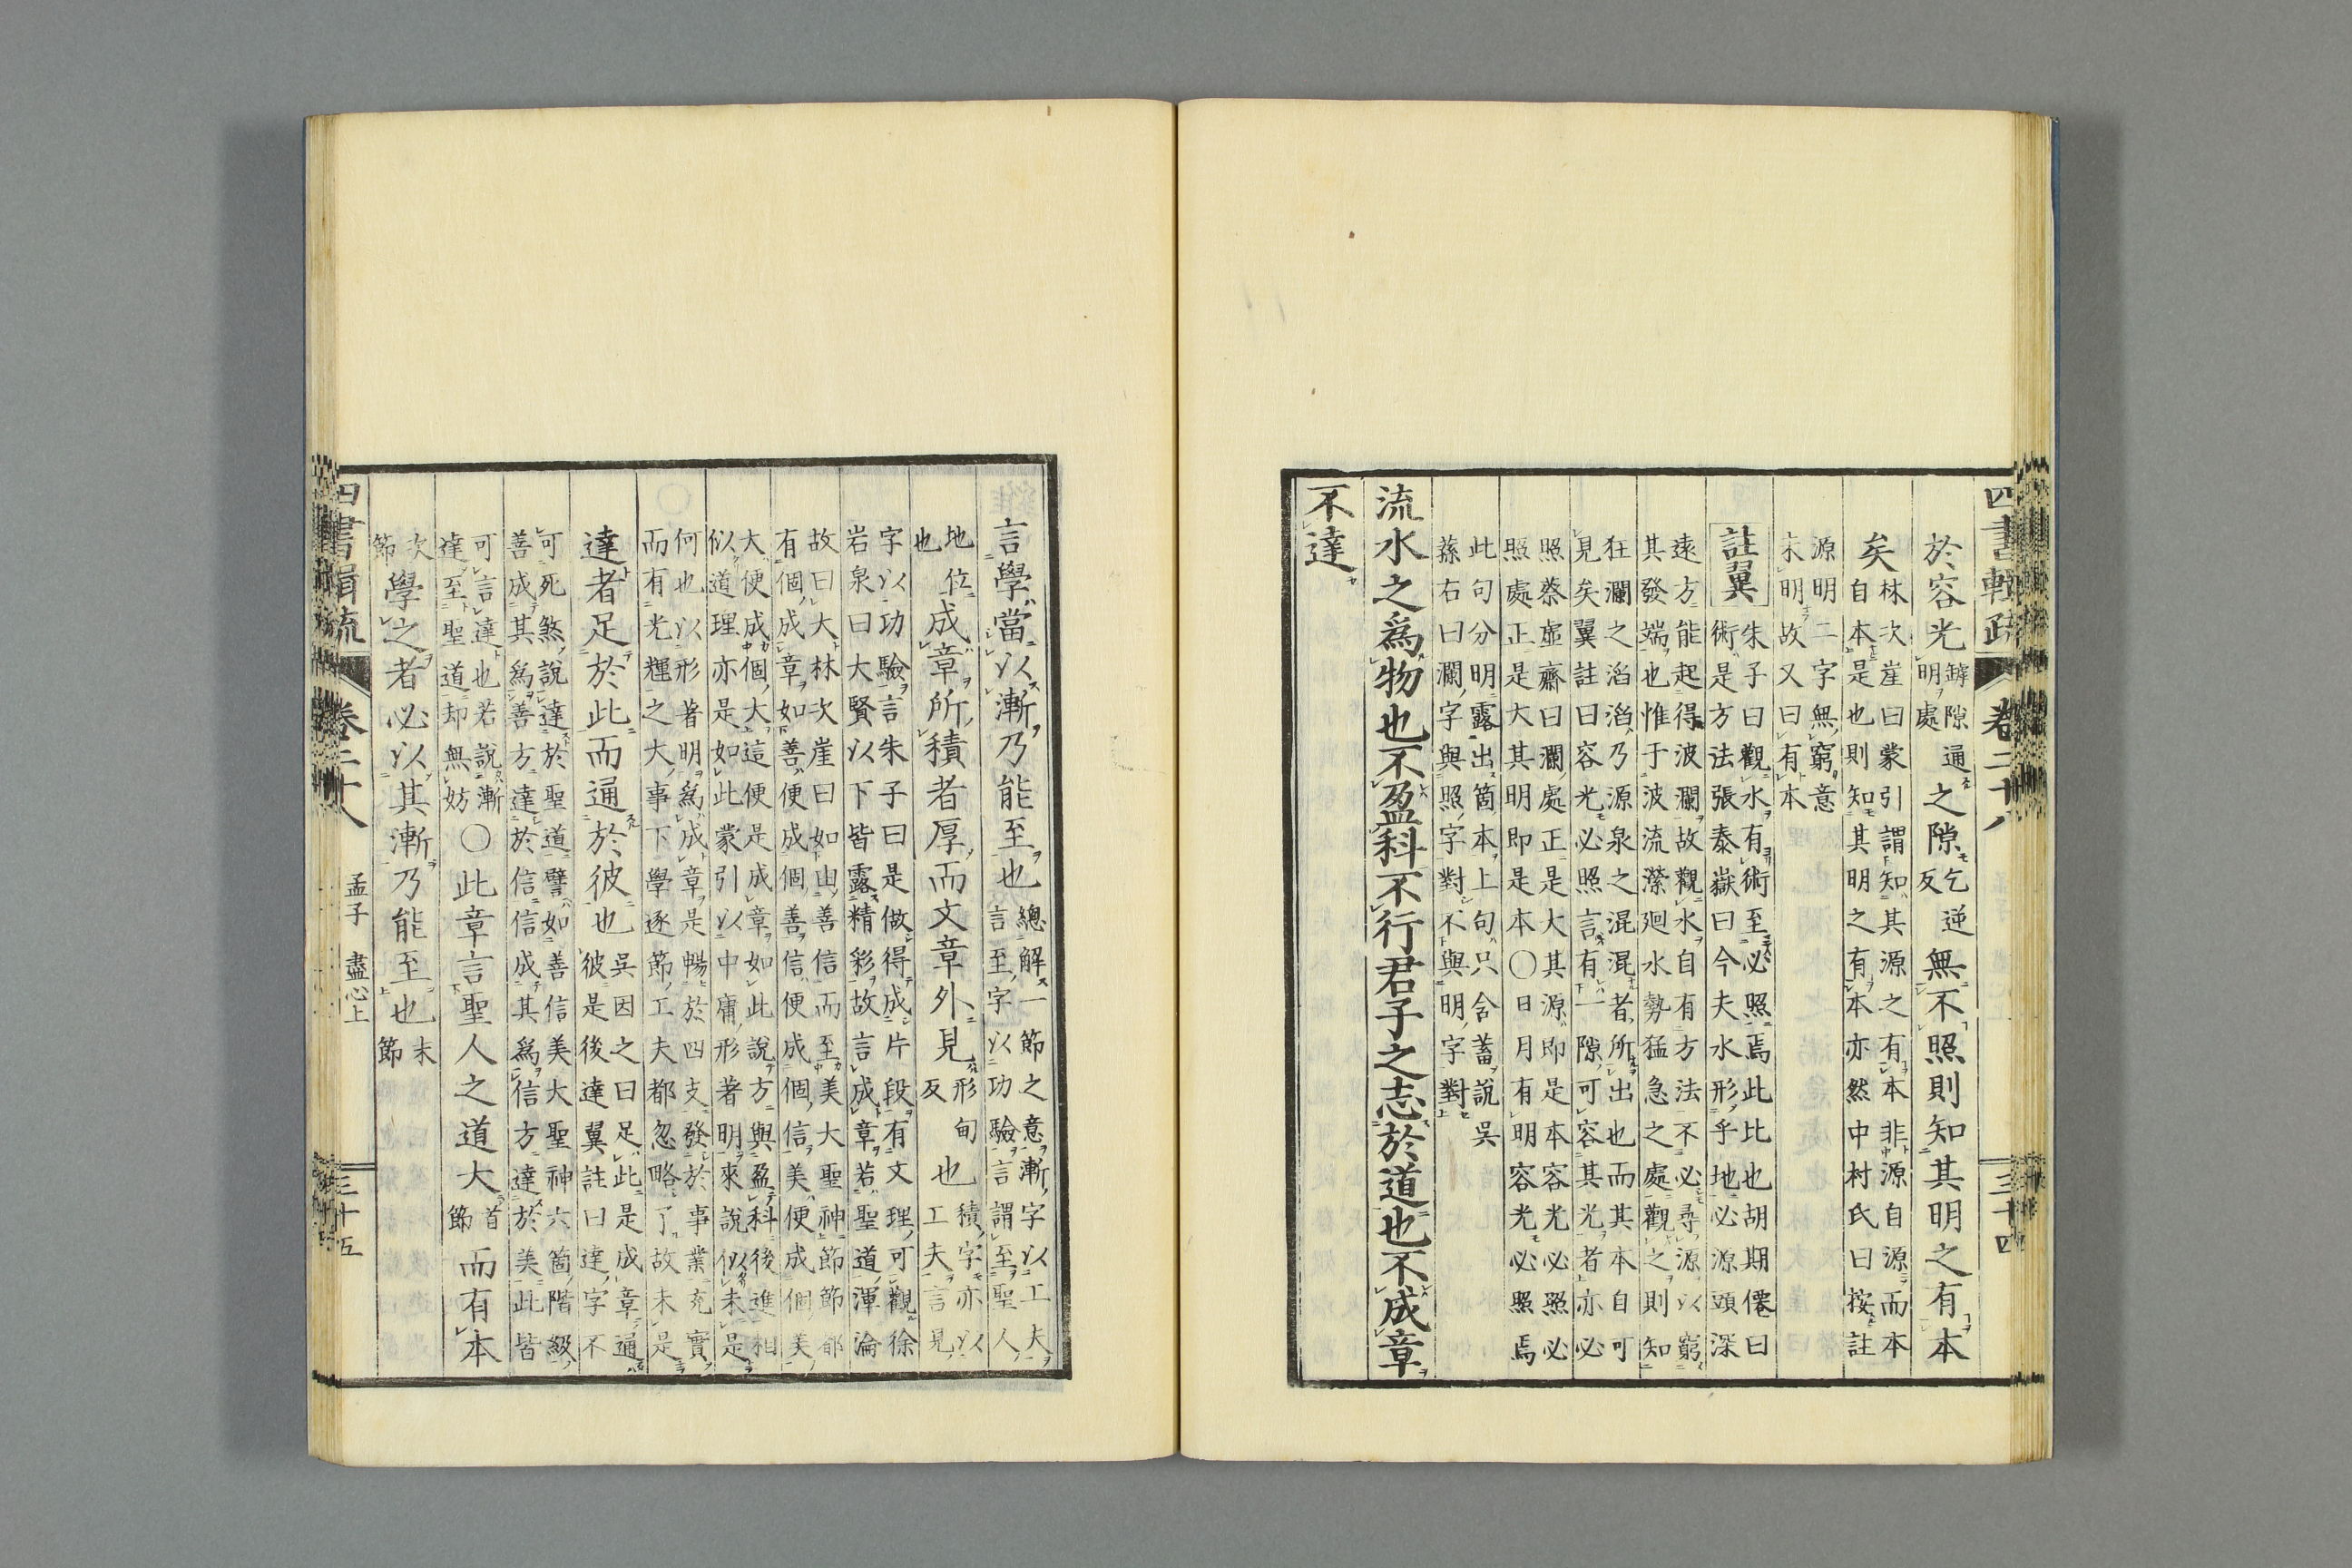 四書輯疏 卷二十八 三十四
於容光
罅隙
明處
通之隙
乞逆
反
無不照則知其明之有本
矣
林次崖曰蒙引謂知其源之有本非源自源而本
自本是也則知其明之有本亦然中村氏曰按註
源明二字無窮意
未明故又曰有本
註翼
朱子曰觀水有術至必照焉此比也胡期僊曰
術是方法張泰嶽曰今夫水形乎地必源頭深
遠方能起得波瀾故觀水自有方法不必尋源以窮
其發端也惟于波流瀠廻水勢猛急之處觀之則知
狂瀾之滔滔乃源泉之混混者所出也而其本自可
見矣翼註曰容光必照言有一隙可容其光者亦必
照蔡虛齋曰瀾處正是大其源即是本容光必照必
照處正是大其明即是本〇日月有明容光必照焉
此句分明露出箇本上句只含蓄說吳
蓀右曰瀾字與照字對不與明字對
流水之爲物也不盈科不行君子之志於道也不成章
不達
言學當以漸乃能至也
總解一節之意漸字以工夫
言至字以功驗言謂至聖人
地位
也
成章所積者厚而文章外見
形甸
反
也
積字亦以
工夫言見
字以功驗言朱子曰是做得成片段有文理可觀徐
岩泉曰大賢以下皆露精彩故言成章若聖道渾淪
故曰大林次崖曰如由善信而至美大聖神節節都
有個成章如善便成個善信便成個信美便成個美
大便成個大這便是成章如此說方與盈科後進相
似道理亦是如此蒙引以中庸形著明來說似未是
何也以形著明爲成章是暢於四支發於事業充實
而有光輝之大事下學逐節工夫都忽略了故未是
達者足於此而通於彼也
吳因之曰足此是成章通
彼是後達翼註曰達字不
可死煞說達於聖道譬如善信美大聖神六箇階級
善成其爲善方達於信信成其爲信方達於美此皆
可言達也若說漸
達至聖道却無妨
〇此章言聖人之道大
首
節
而有本
次
節
學之者必以其漸乃能至也
末
節
四書輯疏 卷二十八 孟子 盡心上 三十五